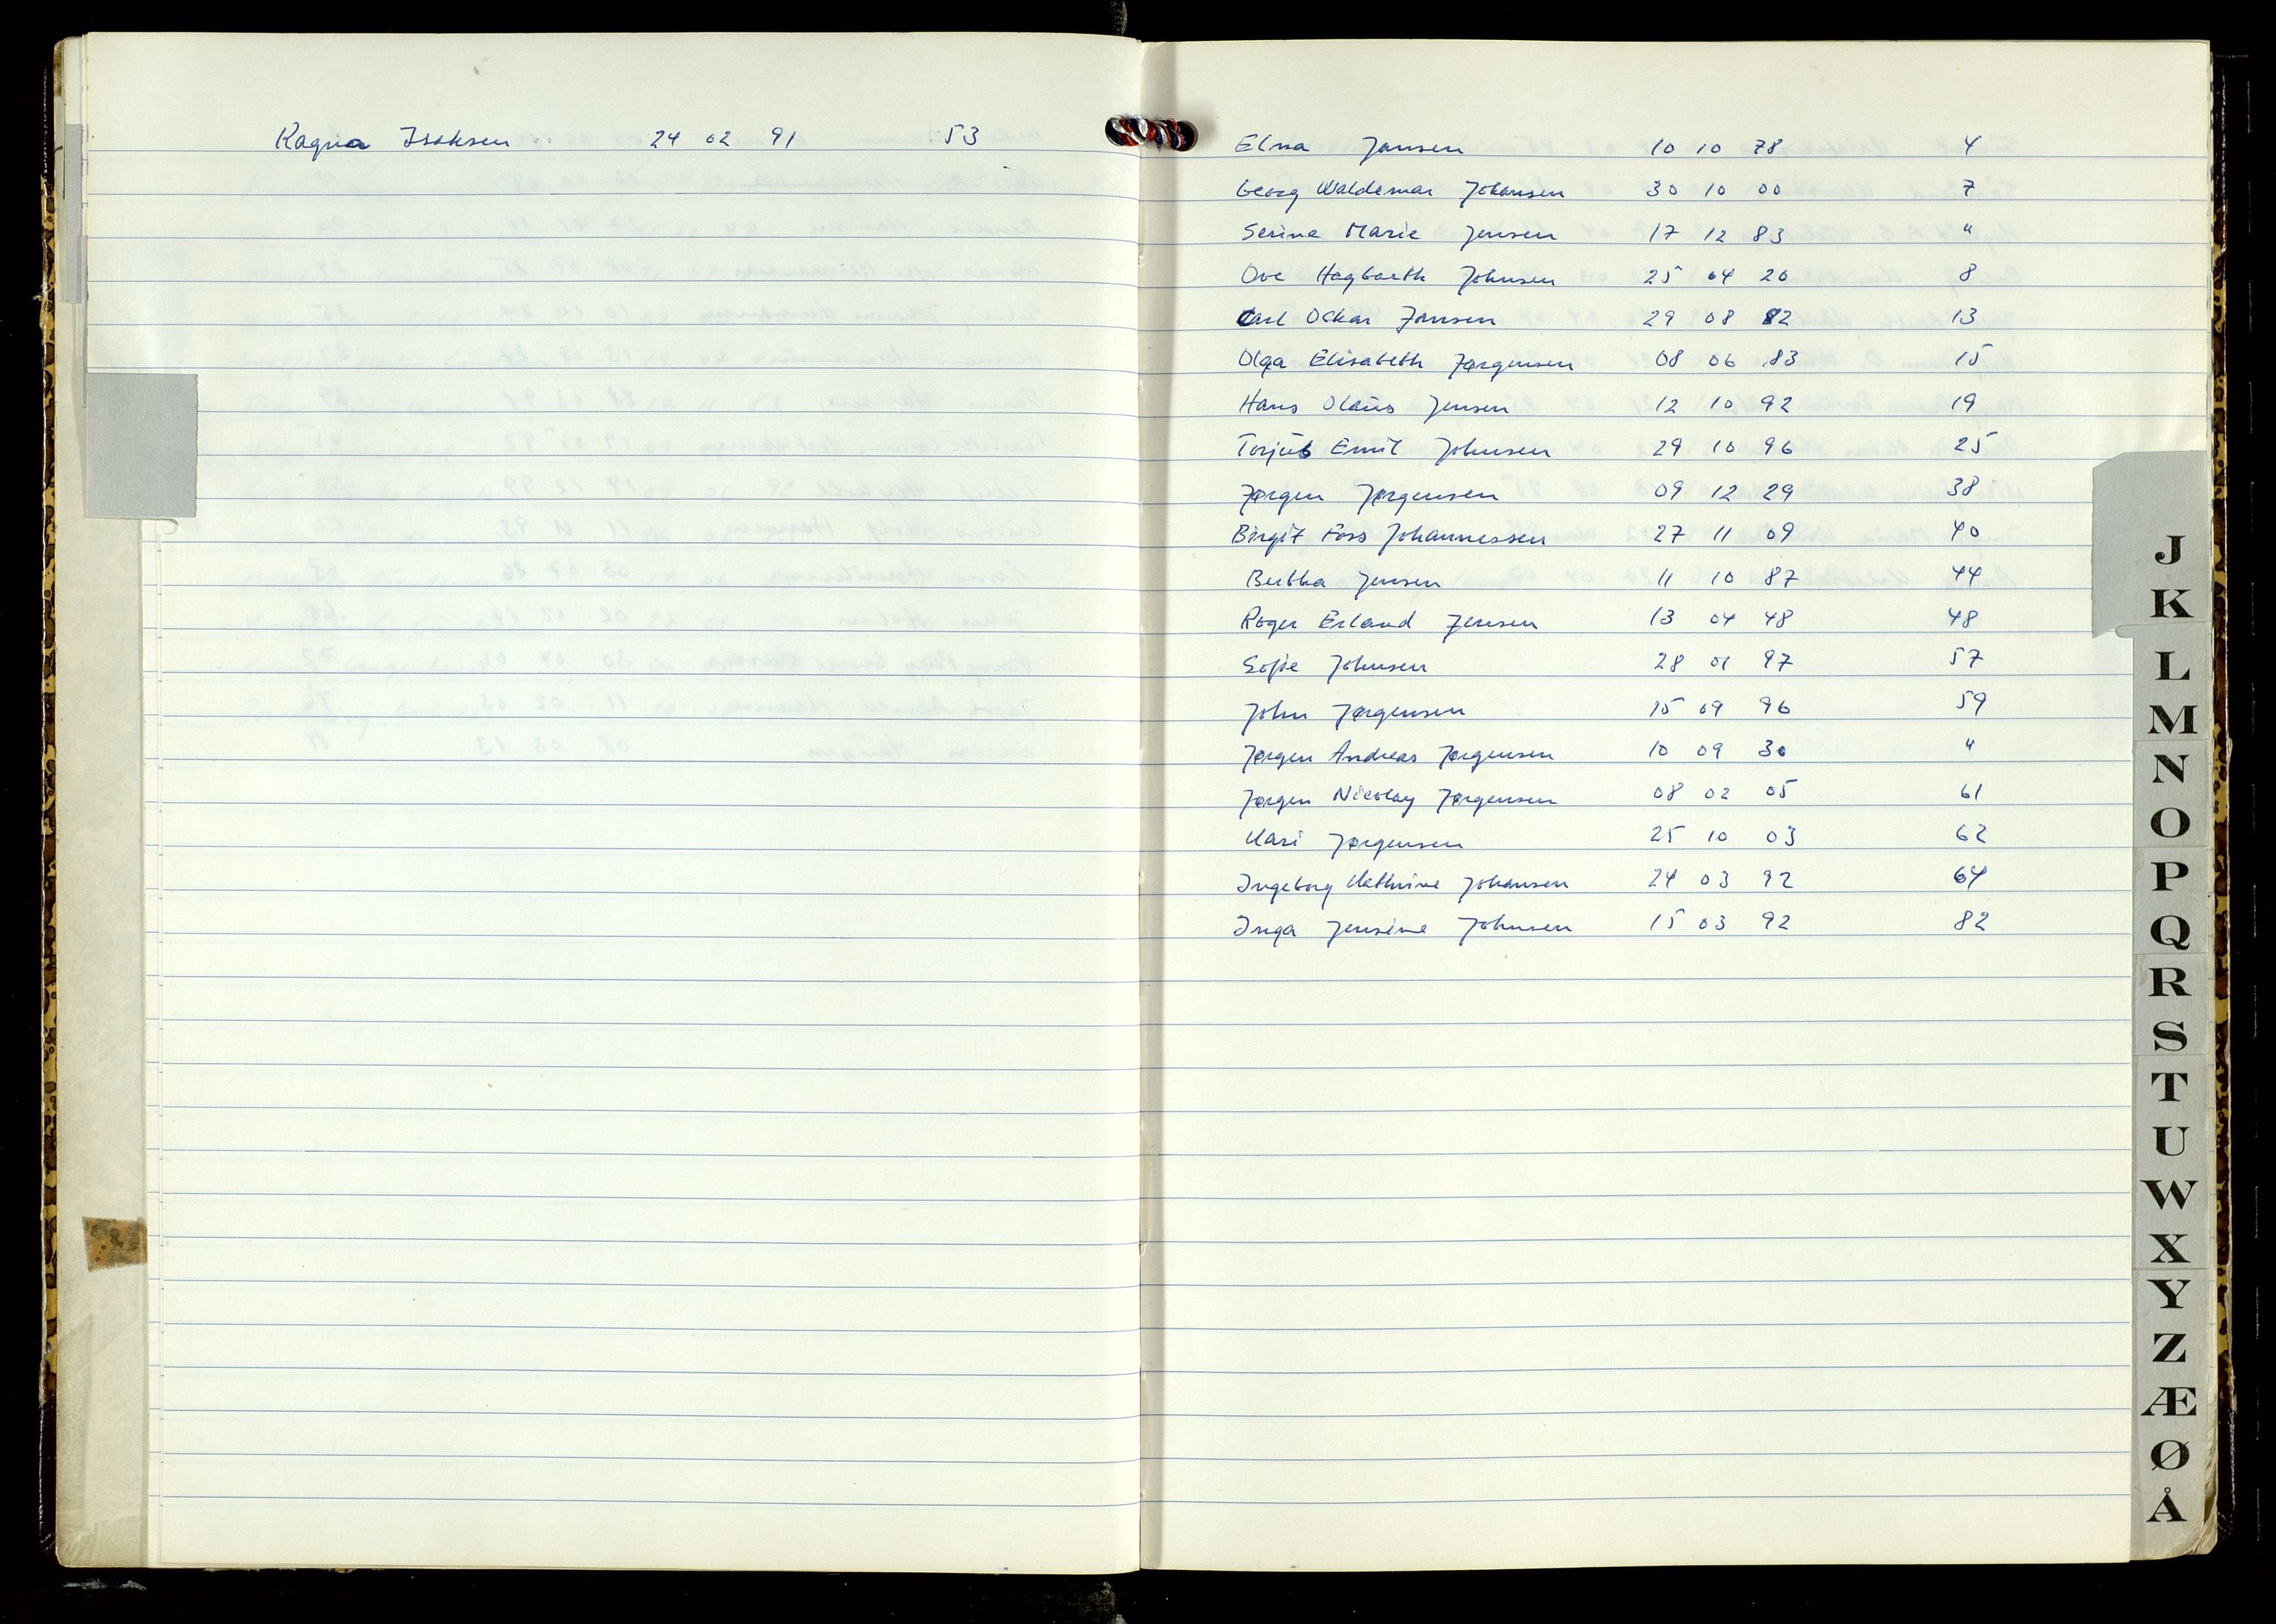 Ragna Isaksen 24 02 91 53
Elna Jansen 10 10 78 4
Georg Waldemar Johansen 30 10 00 7
Serine Marie Jensen 17 12 83 "
Ove Hagbarth Johnsen 25 04 20 8
Carl Oskar Jansen 29 08 82 13
Olga Elisabeth Jørgensen 08 06 83 15
Hans Olaus Jensen 12 10 92 19
Torjus Emil Johnsen 29 10 96 25
Jørgen Jørgensen 09 12 29 38
Birgit Foss Johannessen 27 11 09 40
Bertha Jensen 11 10 87 44
Roger Erland Jensen 13 04 48 48
Sofie Johnsen 28 01 97 57
John Jørgensen 15 09 96 59
Jørgen Andreas Jørgensen 10 09 30 "
Jørgen Nicolay Jørgensen 08 02 05 61
Kari Jørgensen 25 10 03 62
Ingeborg Kathrine Johansen 24 03 92 64
Inga Jensine Johnsen 15 03 92 82
J
K
L
M
N
O
P
Q
R
S
T
U
W
X
Y
Z
Æ
Ø
Å